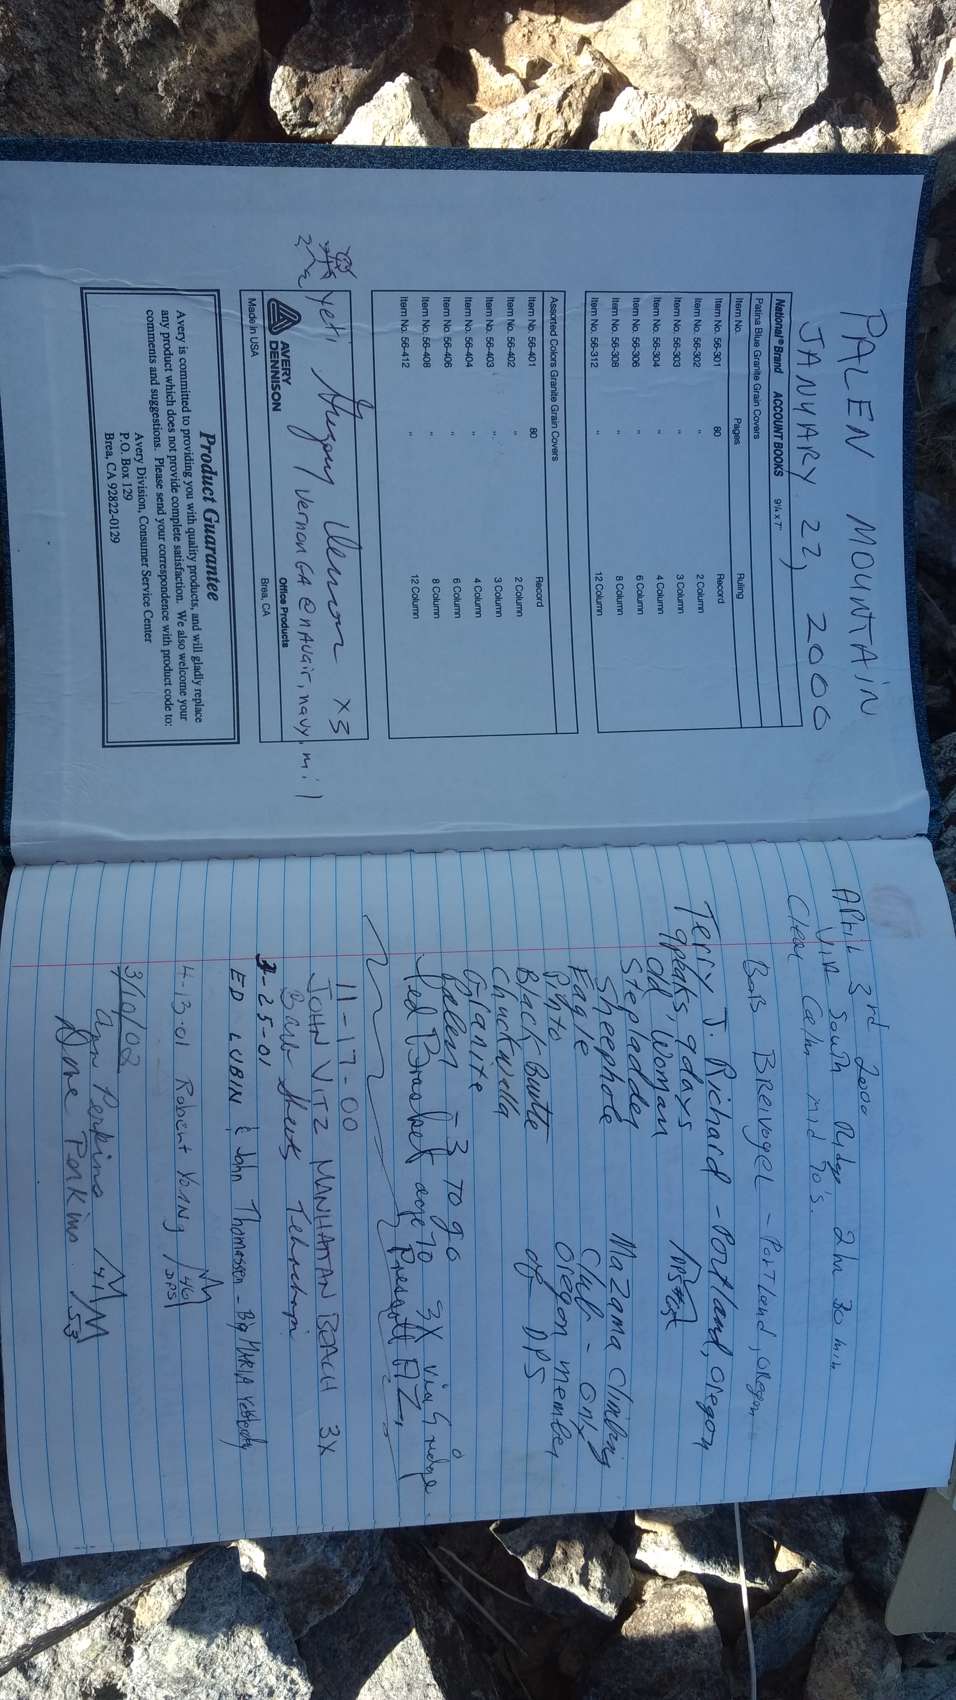 PALEN MOUNTAIN
JANUARY 22, 2000
National® Brand ACCOUNT BOOKS 9¼ x 7"
Patina Blue Granite Grain Covers
Item No. Pages Ruling
Item No. 56-301 80 Record
Item No. 56-302 " 2 Column
Item No. 56-303 " 3 Column
Item No. 56-304 " 4 Column
Item No. 56-306 " 6 Column
Item No. 56-308 " 8 Column
Item No. 56-312 " 12 Column
Assorted Colors Granite Grain Covers
Item No. 56-401 80 Record
Item No. 56-402 " 2 Column
Item No. 56-403 " 3 Column
Item No. 56-404 " 4 Column
Item No. 56-406 " 6 Column
Item No. 56-408 " 8 Column
Item No. 56-412 " 12 Column
Yeti Vernon x3
VernonGA@navair.navy.mil
AVERY
DENNISON
Office Products
Made in USA Brea, CA
Product Guarantee
Avery is committed to providing you with quality products, and will gladly replace
any product which does not provide complete satisfaction. We also welcome your
comments and suggestions. Please send your correspondence with product code to:
Avery Division, Consumer Service Center
P.O. Box 129
Brea, CA 92822-0129
April 3rd 2000
VIA South Ridge 2 hr 30 min
Clear Calm mid 70's.
Bob BREIVOGEL - PORTLAND, OREGON
Terry J. Richard - Portland, Oregon
9 peaks, 9 days
Old Woman
Stepladder Mazama Climbing
Sheephole Club - only
Eagle Oregon member
Pinto of DPS
Black Butte
Chuckwalla
Granite
Palen - 3 to go
Ted Brasket age 70 3X via S ridge
Prescott AZ,
11-17-00
JOHN VITZ MANHATTAN BEACH 3X
Barb Sheets Tehachapi
-25-01
ED LUBIN & John Thomassen - Big MARIA Yesterday
4-13-01 Robert Young 46 DPS
3/10/02
Ann Perkins 41
Dave Perkins 53